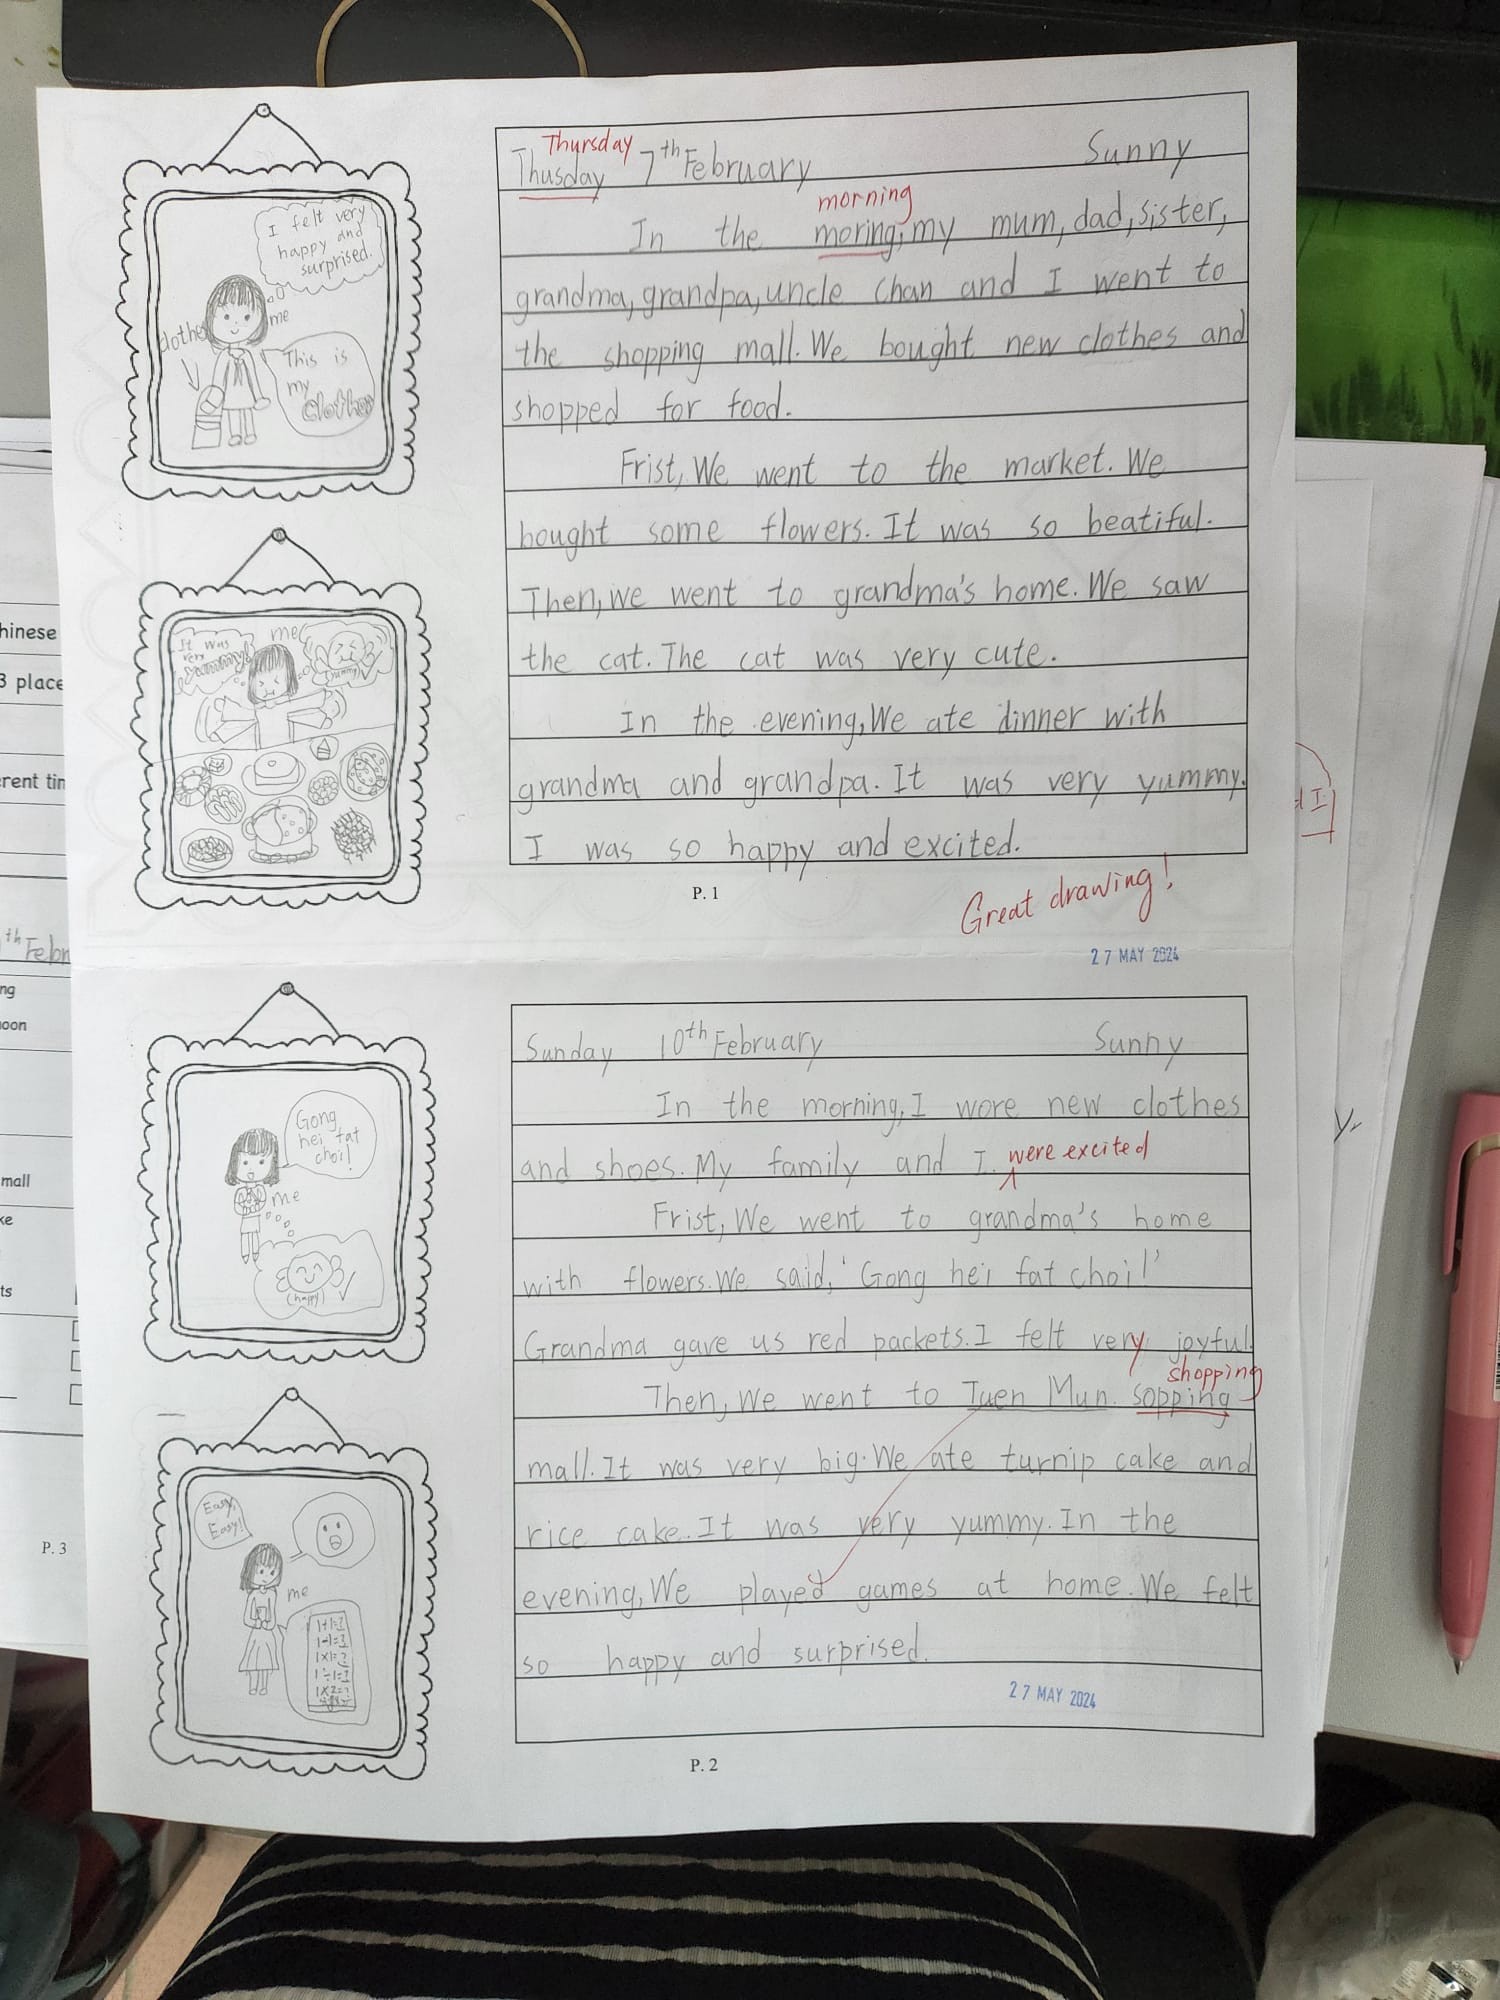 I felt very
happy and
surprised.
me
clothes
This is
my
clothes
Thursday
Thusday 7th February Sunny
morning
In the moring, my mum, dad, sister,
grandma, grandpa, uncle Chan and I went to
the shopping mall. We bought new clothes and
shopped for food.
Frist, We went to the market. We
bought some flowers. It was so beatiful.
Then, we went to grandma's home. We saw
the cat. The cat was very cute.
In the evening, We ate dinner with
grandma and grandpa. It was very yummy.
I was so happy and excited.
It was
very
yummy!
me
yummy
P. 1
Great drawing!
27 MAY 2024
Gong
hei fat
choi!
me
(happy)
Sunday 10th February Sunny
In the morning, I wore new clothes
and shoes. My family and I. were excited
Frist, We went to grandma's home
with flowers. We said, 'Gong hei fat choi!'
Grandma gave us red packets. I felt very joyful.
shopping
Then, We went to Tuen Mun. sopping
mall. It was very big. We ate turnip cake and
rice cake. It was very yummy. In the
evening, We played games at home. We felt
so happy and surprised.
27 MAY 2024
Easy,
Easy!
me
1+1=?
1-1=?
1×1=?
1÷1=?
1×2=?
P. 2
hinese
3 place
rent tin
th Febr
ng
oon
mall
ke
ts
P. 3
d I